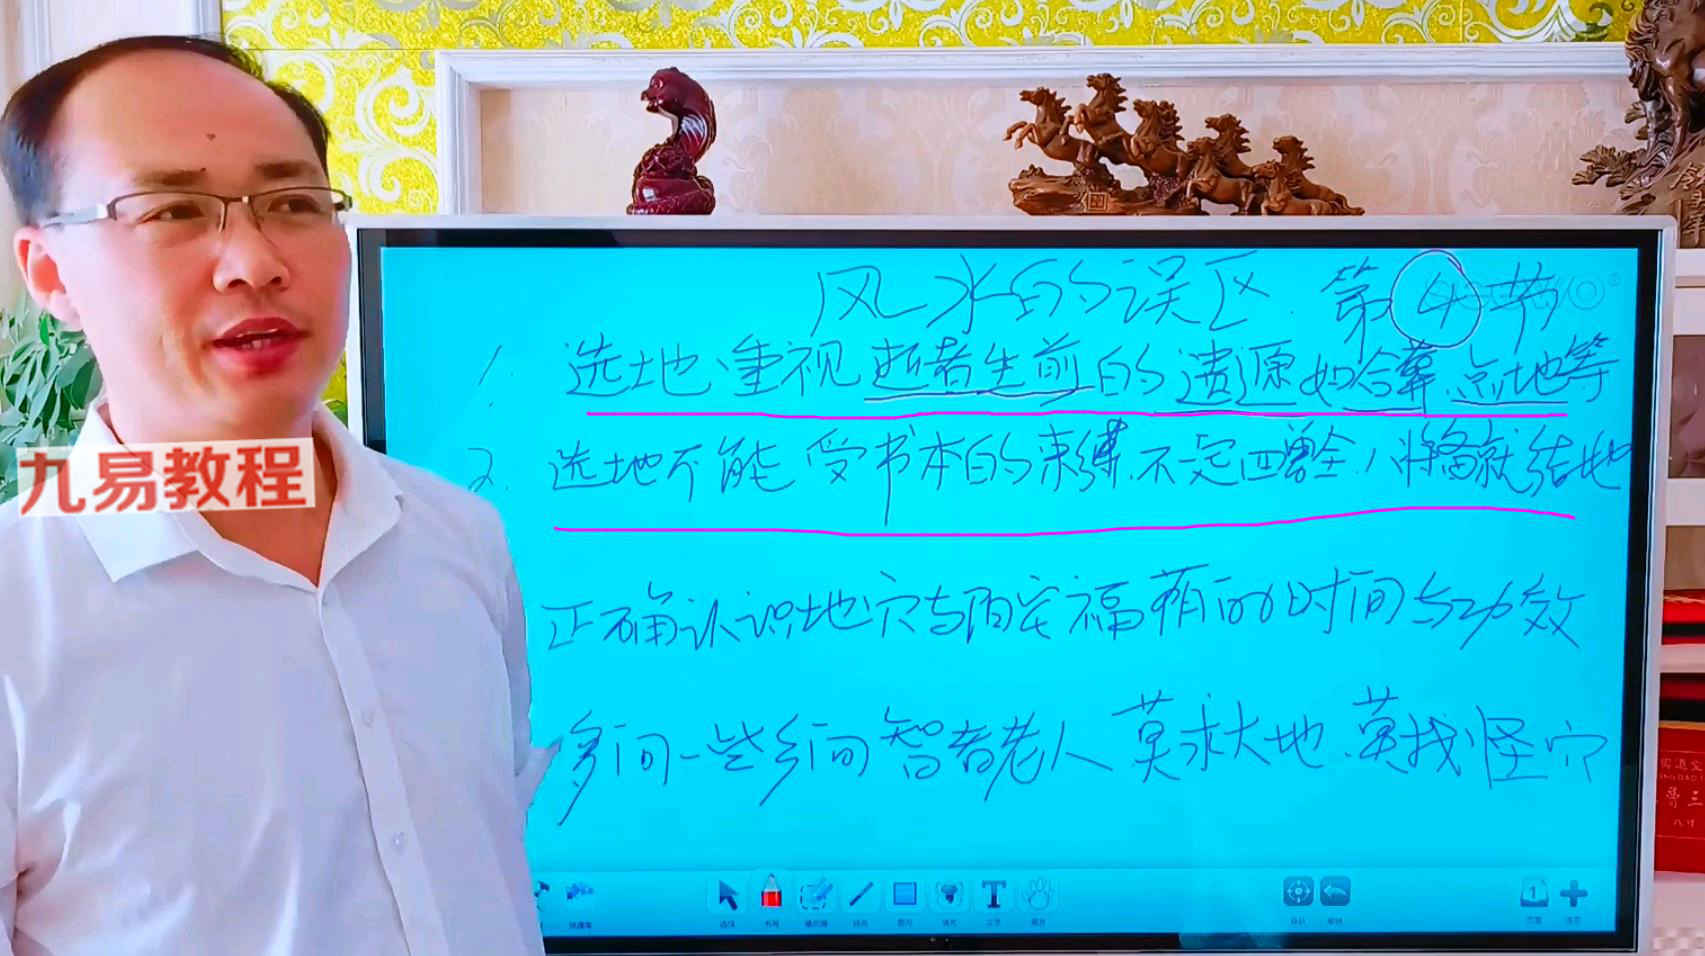 风水的误区 第4节
1. 选地重视逝者生前的遗愿如合葬、点地等
2. 选地不能受书本的束缚、不一定四兽全、八将备就结地
正确认识地穴与阳宅福荫的时间与功效
多问一些乡间智者老人 莫求大地、莫找怪穴
九易教程